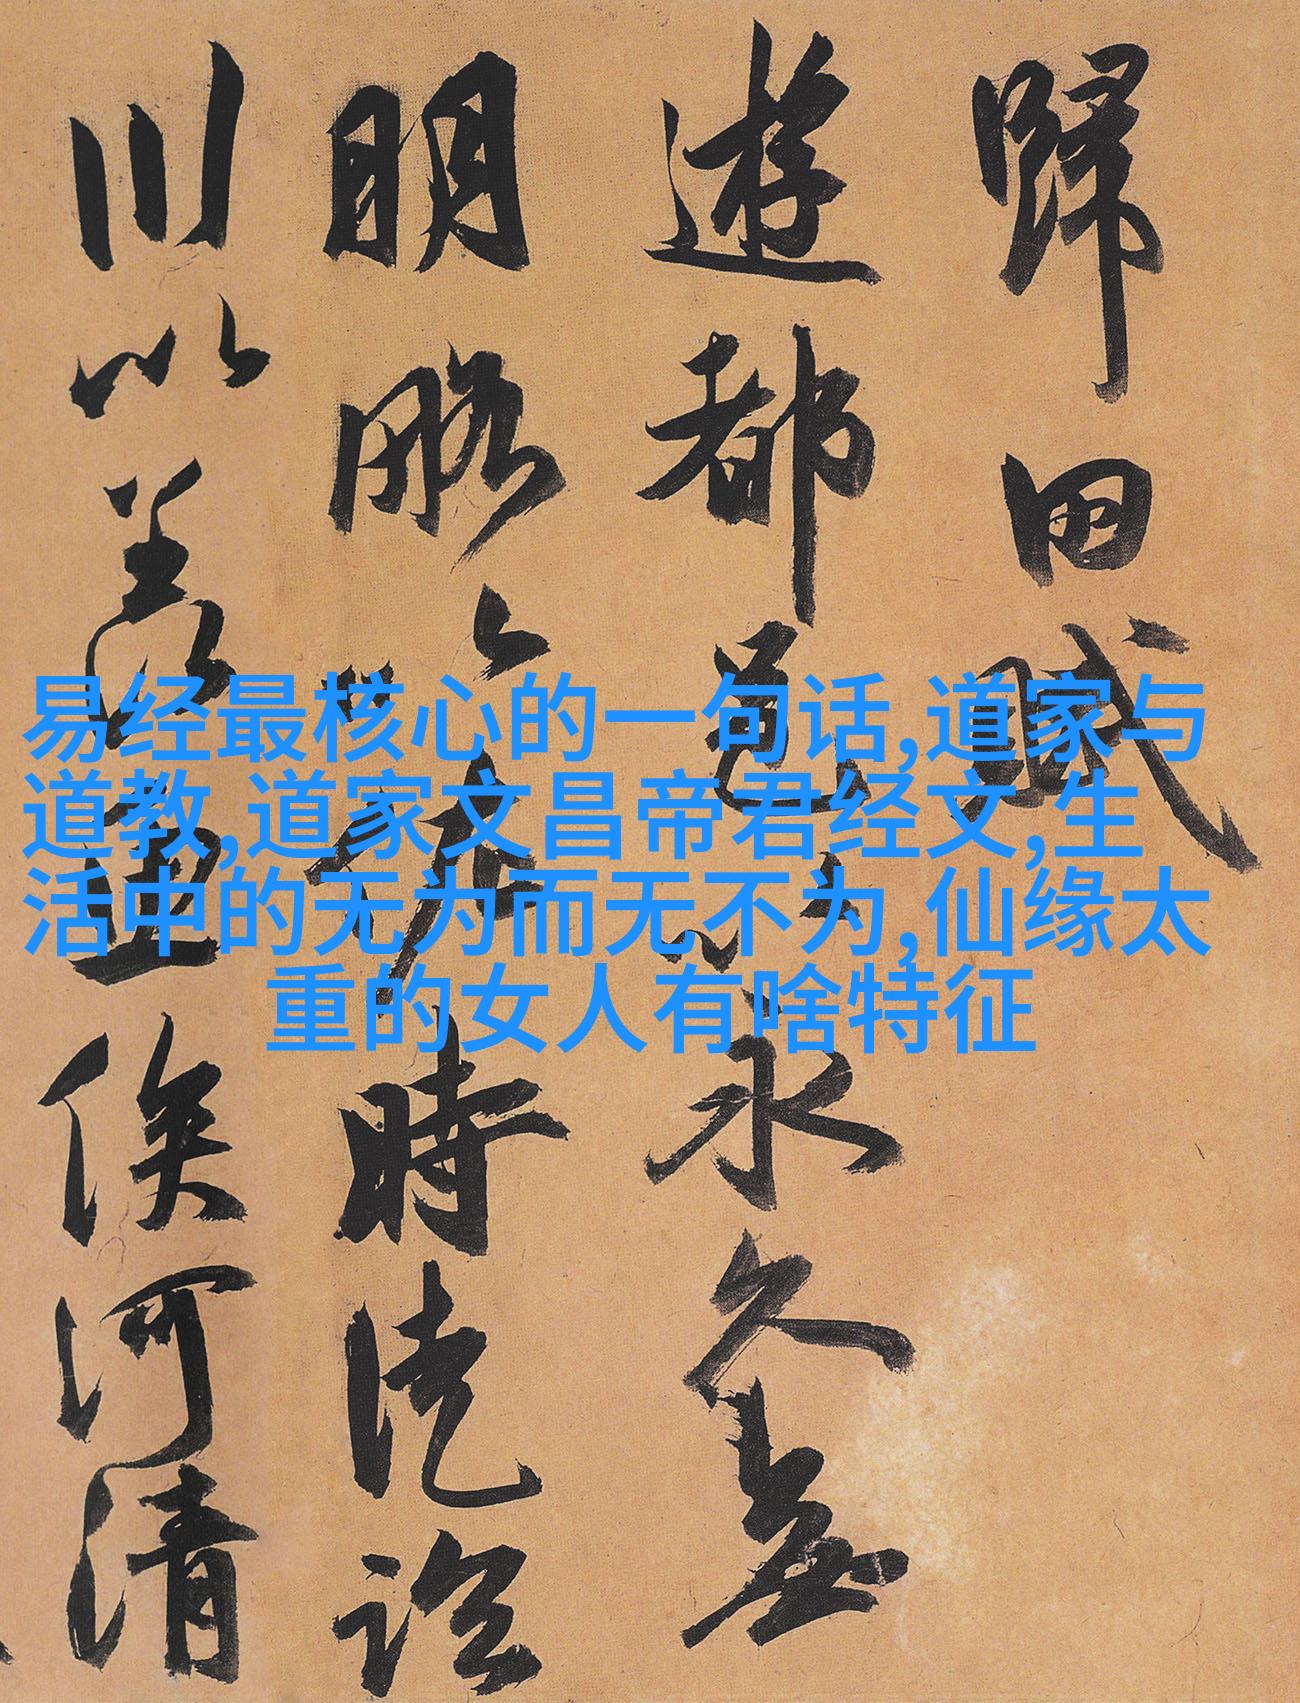 歸田賦
遊都邑以永久無
明略以佐時徒臨
川以羡魚俟河清
易经最核心的一句话,道家与
道教,道家文昌帝君经文,生
活中的无为而无不为,仙缘太
重的女人有啥特征